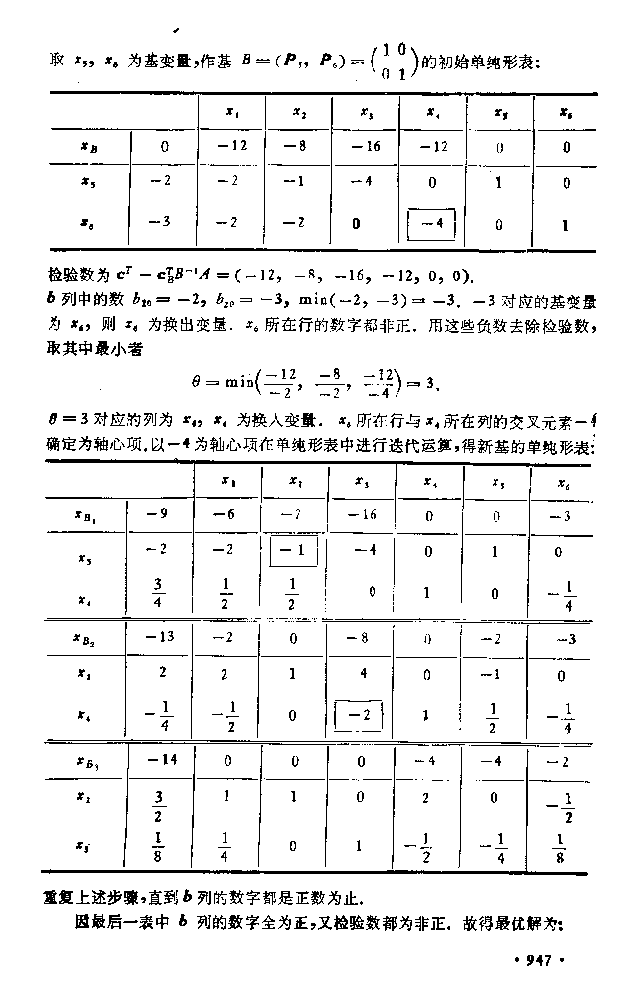 取 x₅, x₆ 为基变量,作基 B=(P₅, P₆)=(1 0
0 1)的初始单纯形表:
x₁ x₂ x₃ x₄ x₅ x₆
x_B 0 −12 −8 −16 −12 0 0
x₅ −2 −2 −1 −4 0 1 0
x₆ −3 −2 −2 0 −4 0 1
检验数为 cᵀ − cᵀ_B B⁻¹A = (−12, −8, −16, −12, 0, 0).
b 列中的数 b₁₀ = −2, b₂₀ = −3, min(−2, −3) = −3. −3 对应的基变量
为 x₆, 则 x₆ 为换出变量. x₆ 所在行的数字都非正. 用这些负数去除检验数,
取其中最小者
θ = min(−12/−2, −8/−2, −12/−4) = 3.
θ = 3 对应的列为 x₄, x₄ 为换入变量. x₆ 所在行与 x₄ 所在列的交叉元素 −4
确定为轴心项.以 −4 为轴心项在单纯形表中进行迭代运算,得新基的单纯形表:
x₁ x₂ x₃ x₄ x₅ x₆
x_B₁ −9 −6 −2 −16 0 0 −3
x₅ −2 −2 −1 −4 0 1 0
x₄ 3/4 1/2 1/2 0 1 0 −1/4
x_B₂ −13 −2 0 −8 0 −2 −3
x₂ 2 2 1 4 0 −1 0
x₄ −1/4 −1/2 0 −2 1 1/2 −1/4
x_B₃ −14 0 0 0 −4 −4 −2
x₂ 3/2 1 1 0 2 0 −1/2
x₃ 1/8 1/4 0 1 −1/2 −1/4 1/8
重复上述步骤,直到 b 列的数字都是正数为止.
因最后一表中 b 列的数字全为正,又检验数都为非正. 故得最优解为:
• 947 •